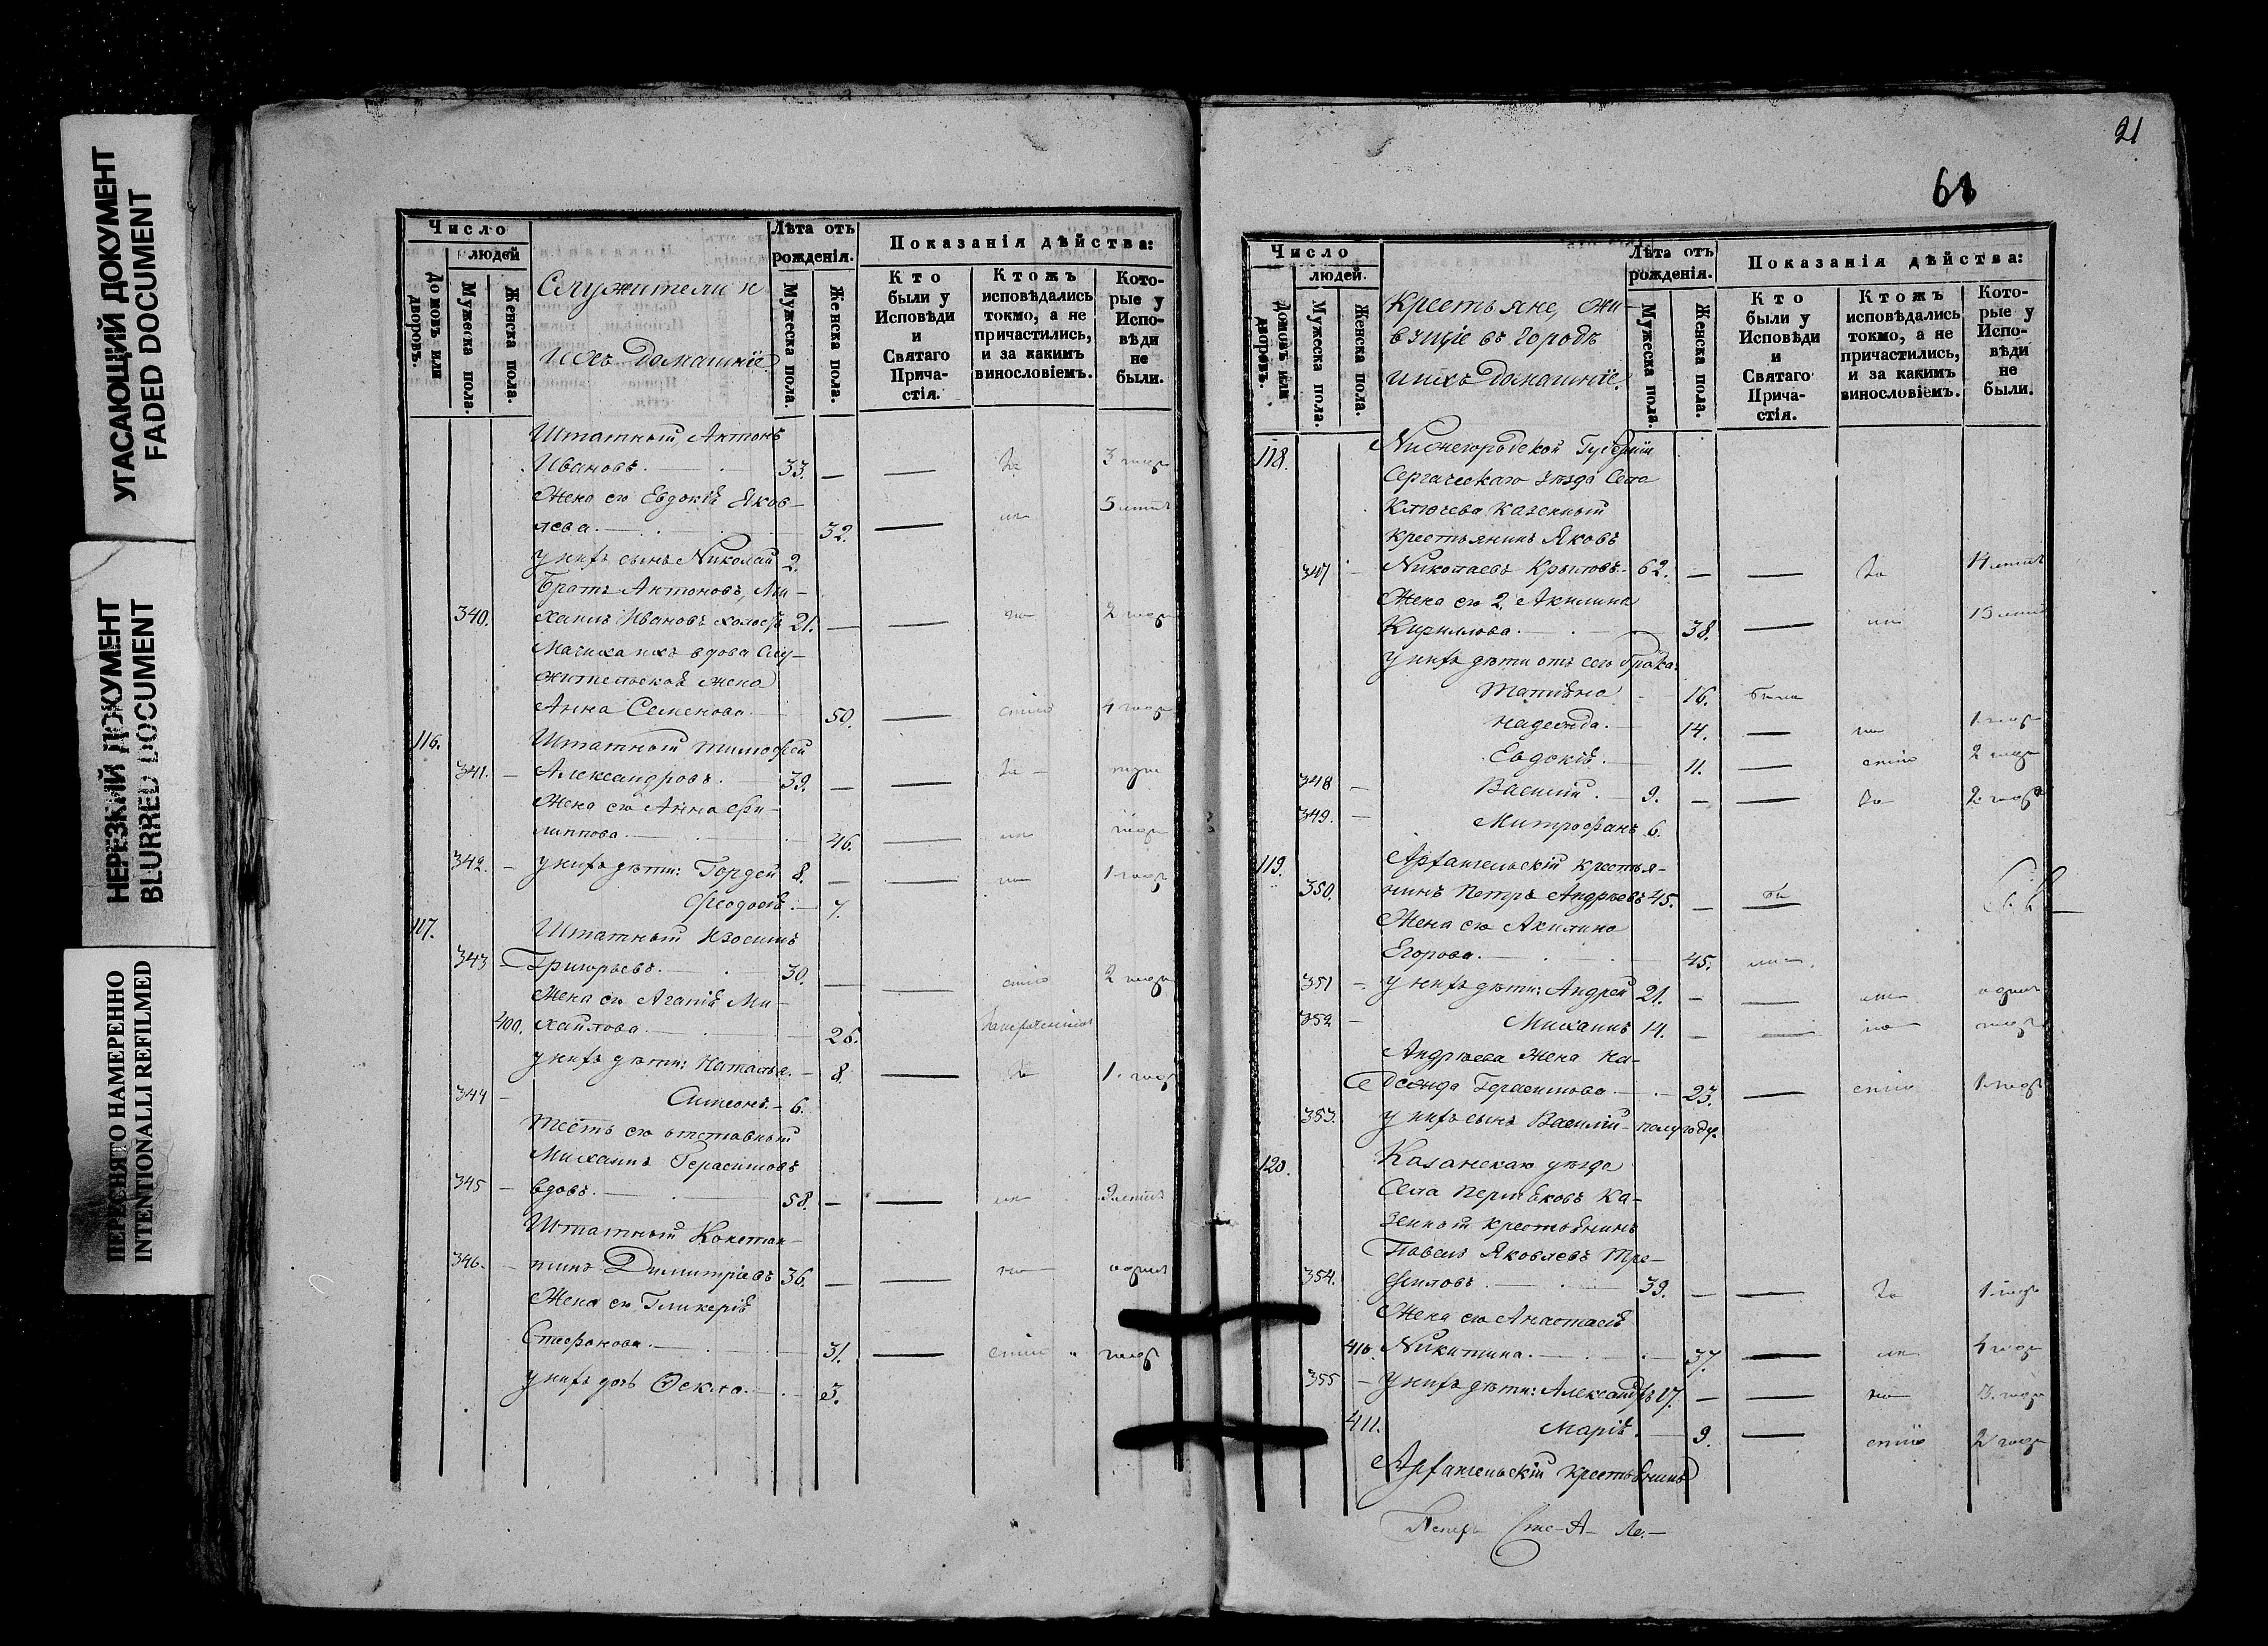 УГАСАЮЩИЙ ДОКУМЕНТ
FADED DOCUMENT
НЕРЕЗКИЙ ДОКУМЕНТ
BLURRED DOCUMENT
ПЕРЕСНЯТО НАМЕРЕННО
INTENTIONALLI REFILMED
Число
людей
Домовъ или дворовъ.
Мужеска пола.
Женска пола.
Служители и
ихъ домашніе
Лѣта отъ
рожденія.
Мужеска пола.
Женска пола.
Показанія дѣйства:
Кто
были у
Исповѣди
и
Святаго
Прича-
стія.
Ктожъ
исповѣдались
токмо, а не
причастились,
и за какимъ
винословіемъ.
Кото-
рые у
Испо-
вѣди
не
были.
Штатный Антонъ
Ивановъ. 33. — — За 3 года
Жена его Евдокія Яков-
лева. 32. — 5 лѣтъ
у нихъ сынъ Николай 2.
Братъ Антоновъ, Ми-
340. хаилъ Ивановъ холостъ 21. — — 2 года
Мачиха ихъ вдова слу-
жительская жена
Анна Семенова 50. — 4 года
116. Штатный Тимофей
341. — Александровъ. 39. — — За —
Жена его Анна Фи-
липпова. 46. —
342. — у нихъ дѣти: Гордей 8. — — 1 годъ
Феодосія. — 7.
117. Штатный Изосимъ
343 — Григорьевъ. 30. — — 2 года
Жена его Агапія Ми-
400. хайлова 26.
у нихъ дѣти: Наталья. — 8. — 1 годъ
344 — Симеонъ. — 6.
Тесть его отставный
Михаилъ Герасимовъ
345 — вдовъ. 58. — — лѣтъ
Штатный Констан-
346. — тинъ Димитріевъ 36. — — одинъ
Жена его Гликерія
Стефанова. 31. — годъ
у нихъ дочь Ѳекла. 3.
21
68
Число
людей.
Домовъ или дворовъ.
Мужеска пола.
Женска пола.
Крестьяне, жи-
вущіе въ городѣ
и ихъ домашніе.
Лѣта отъ
рожденія.
Мужеска пола.
Женска пола.
Показанія дѣйства:
Кто
были у
Исповѣди
и
Святаго
Прича-
стія.
Ктожъ
исповѣдались
токмо, а не
причастились,
и за какимъ
винословіемъ.
Кото-
рые у
Испо-
вѣди
не
были.
118. Нижегородской Губерніи
Сергачскаго уѣзда Села
Ключева казенный
крестьянинъ Яковъ
347 — Николаевъ Крыловъ. 62. — — За лѣтъ
Жена его 2. Акилина
Кириллова. 38. — 13 лѣтъ
у нихъ дѣти отъ сего брака:
Татіана 16. была
Надежда. 14. — 1 годъ
Евдокія. 11. — 2 года
348 — Василій. 9. — — За 2 года
349. — Митрофанъ 6.
119. Архангельскій крестья-
350. нинъ Петръ Андреевъ 45. —
Жена его Акилина
Егорова. 45.
351 — у нихъ дѣти: Андрей 21. — — одинъ
352 — Михаилъ 14. — — годъ
Андреева жена На-
дежда Герасимова 23. — 1 годъ
353. у нихъ сынъ Василій — полугоду.
120. Казанскаго уѣзда
Села Пермяковъ ка-
зенный крестьянинъ
Павелъ Яковлевъ Тре-
354. филовъ. 39. — — За 1 годъ
Жена его Анастасія
410. Никитина. 37. — 4 года
355 — у нихъ дѣти: Александръ 17. — — 3 года
411. Марія. 9. — 2 года
Архангельскій крестьянинъ